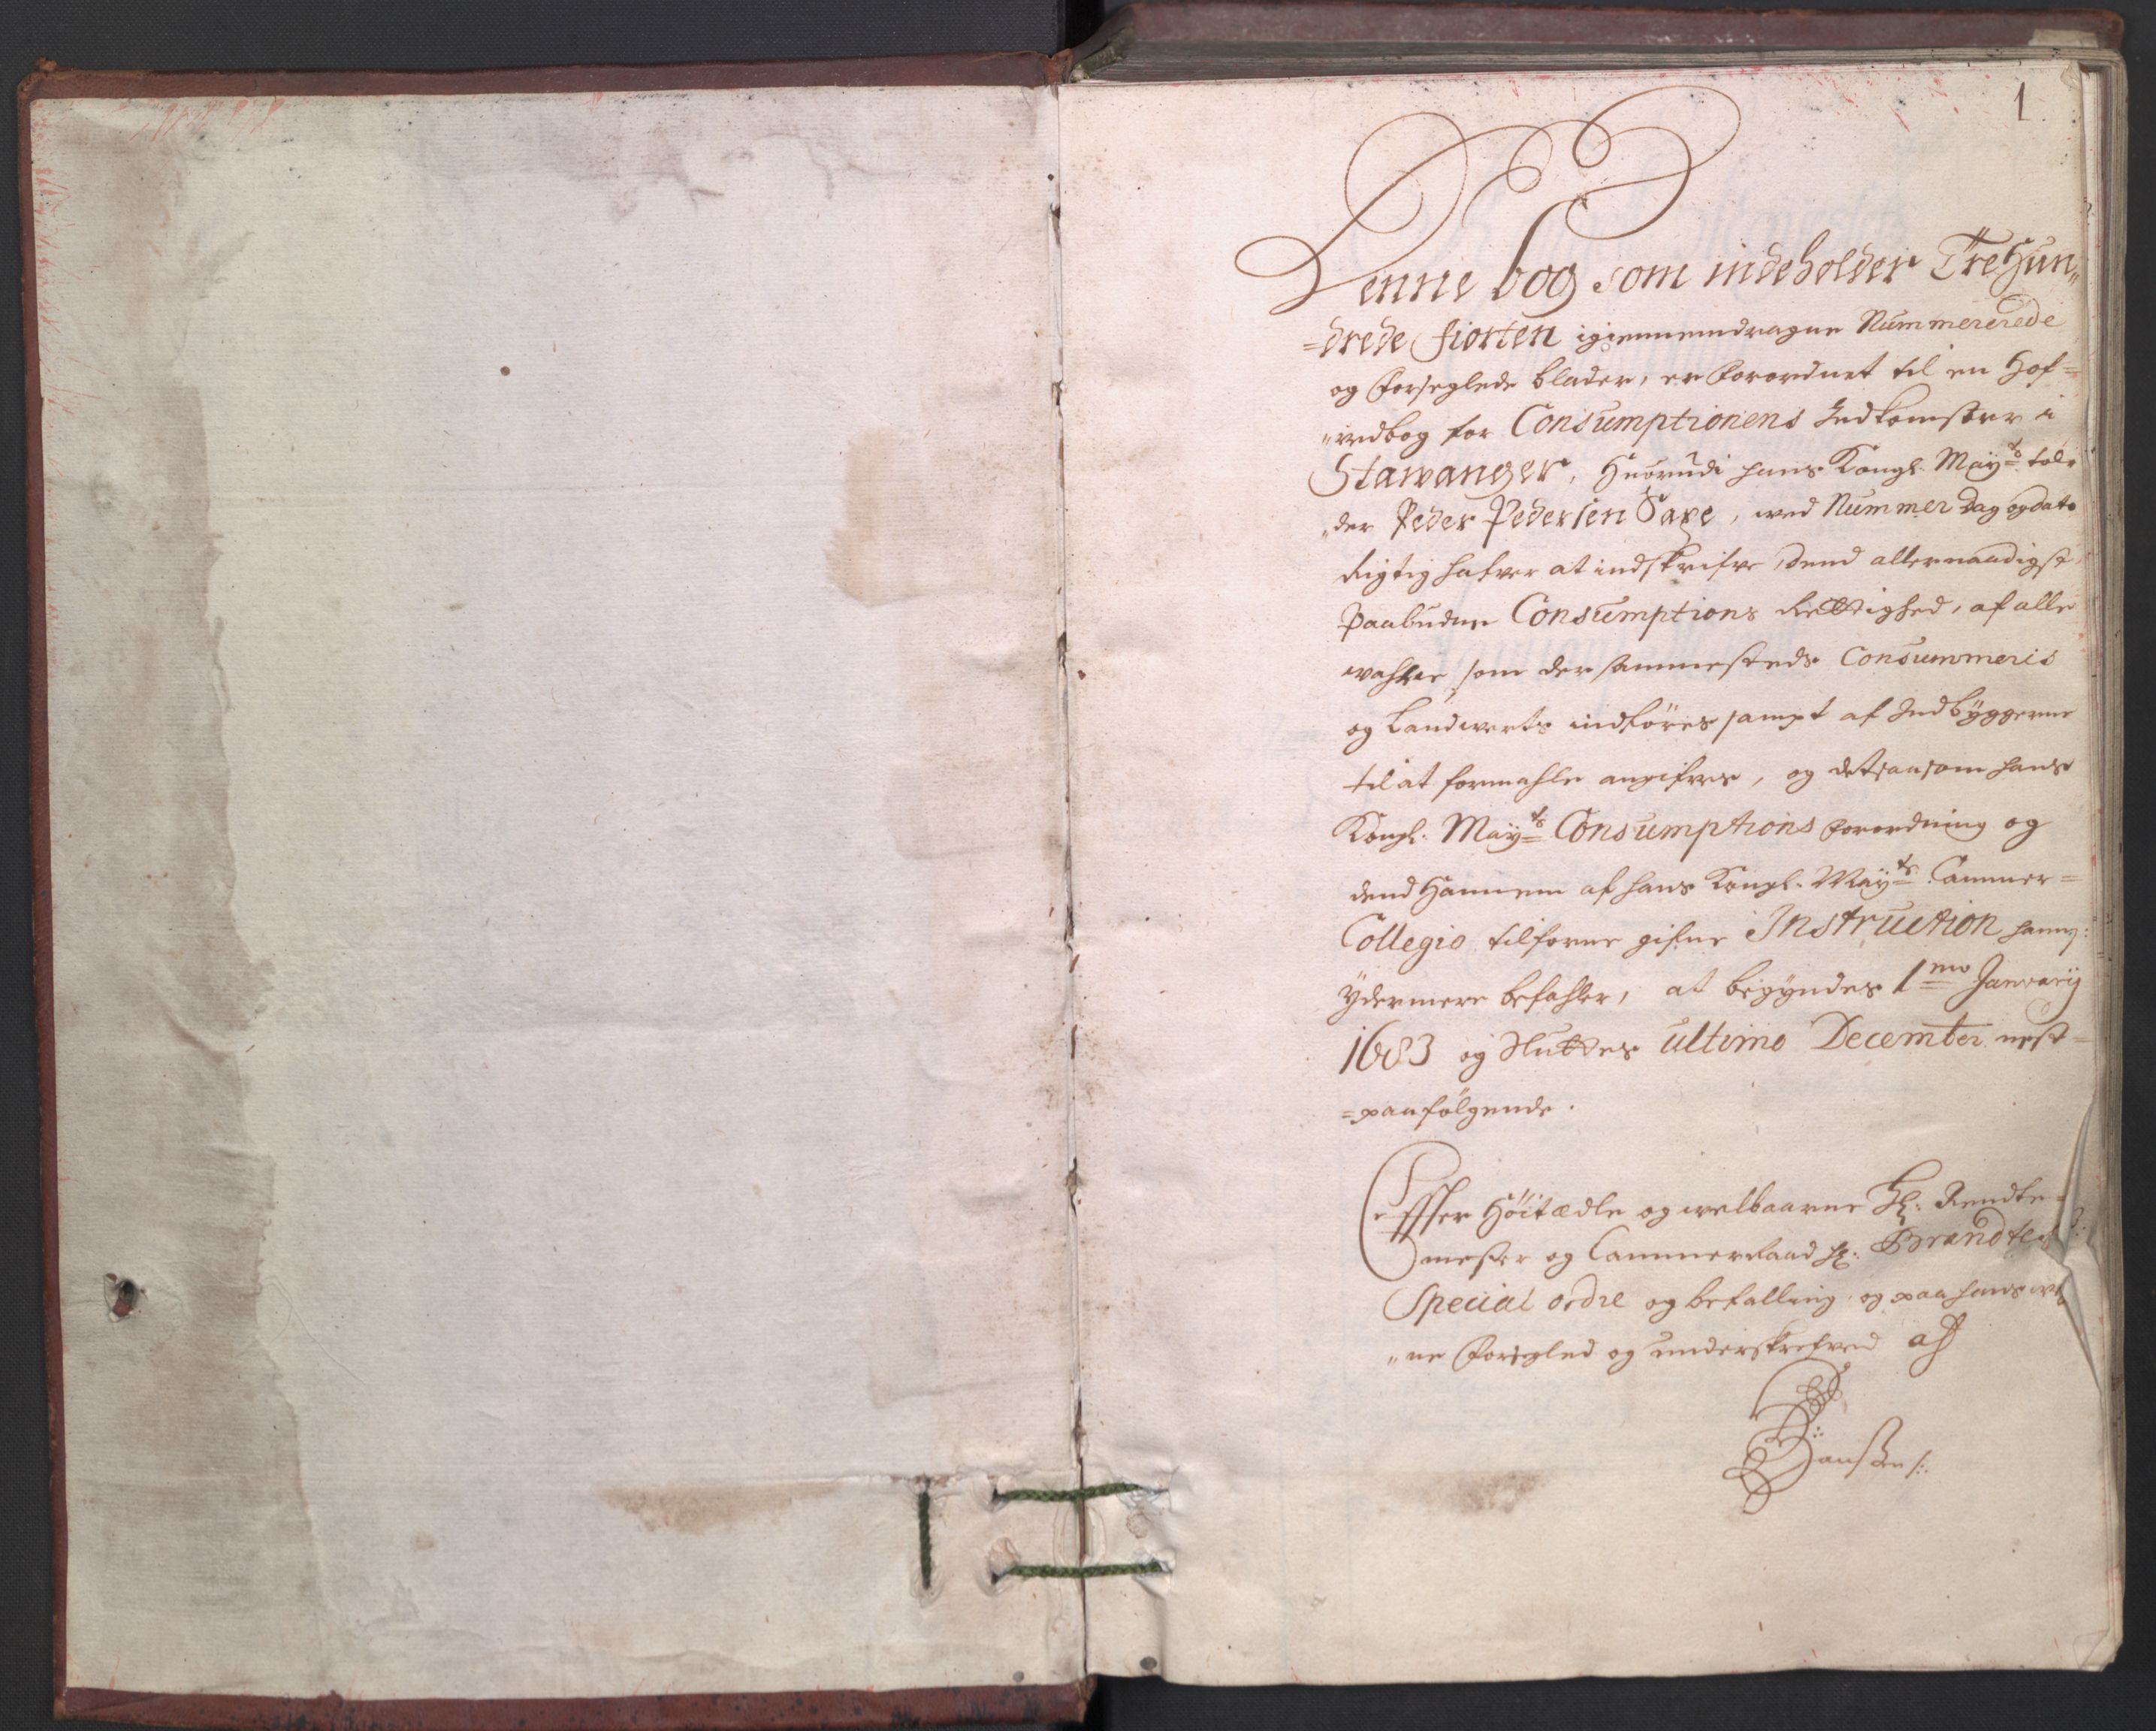 1
Denne bog som indeholder TreHun„
=drede fiorten igiennemdragne Nummererede
og forseglede blader, er forordnet til en Hof=
„vedbog for Consumptionens Indkomster i
Stawanger, Huorudi hans Kongl. Mayts tol„
„der Peder Pedersen Saxe, med Nummer dag og dato
Rigtig hafver at indskrifve, dend allernaadigst
Paabudne Consumptions Rettighed, af alle
wahre, som der sammesteds Consummeris
og Landwerts indføres sampt af Indbyggerne
til at formahle angifves, og det saasom hans
Kongl. Mayts Consumptions forordning og
dend Hannem af hans Kongl. Mayts Cammer=
Collegio tilforne gifne Instruction hannem
ÿdermere befahler, at begyndes 1mo Januarij
1683 og Sluttes ultimo December nest=
=paafølgende.
Effter Höitædle og welbaarne Hr: Rendte=
mester og Cammerraad Hr: Brandtes
Special ordre og befalling og paa hans
„ne forsegled og underskrefved af
Hanssen